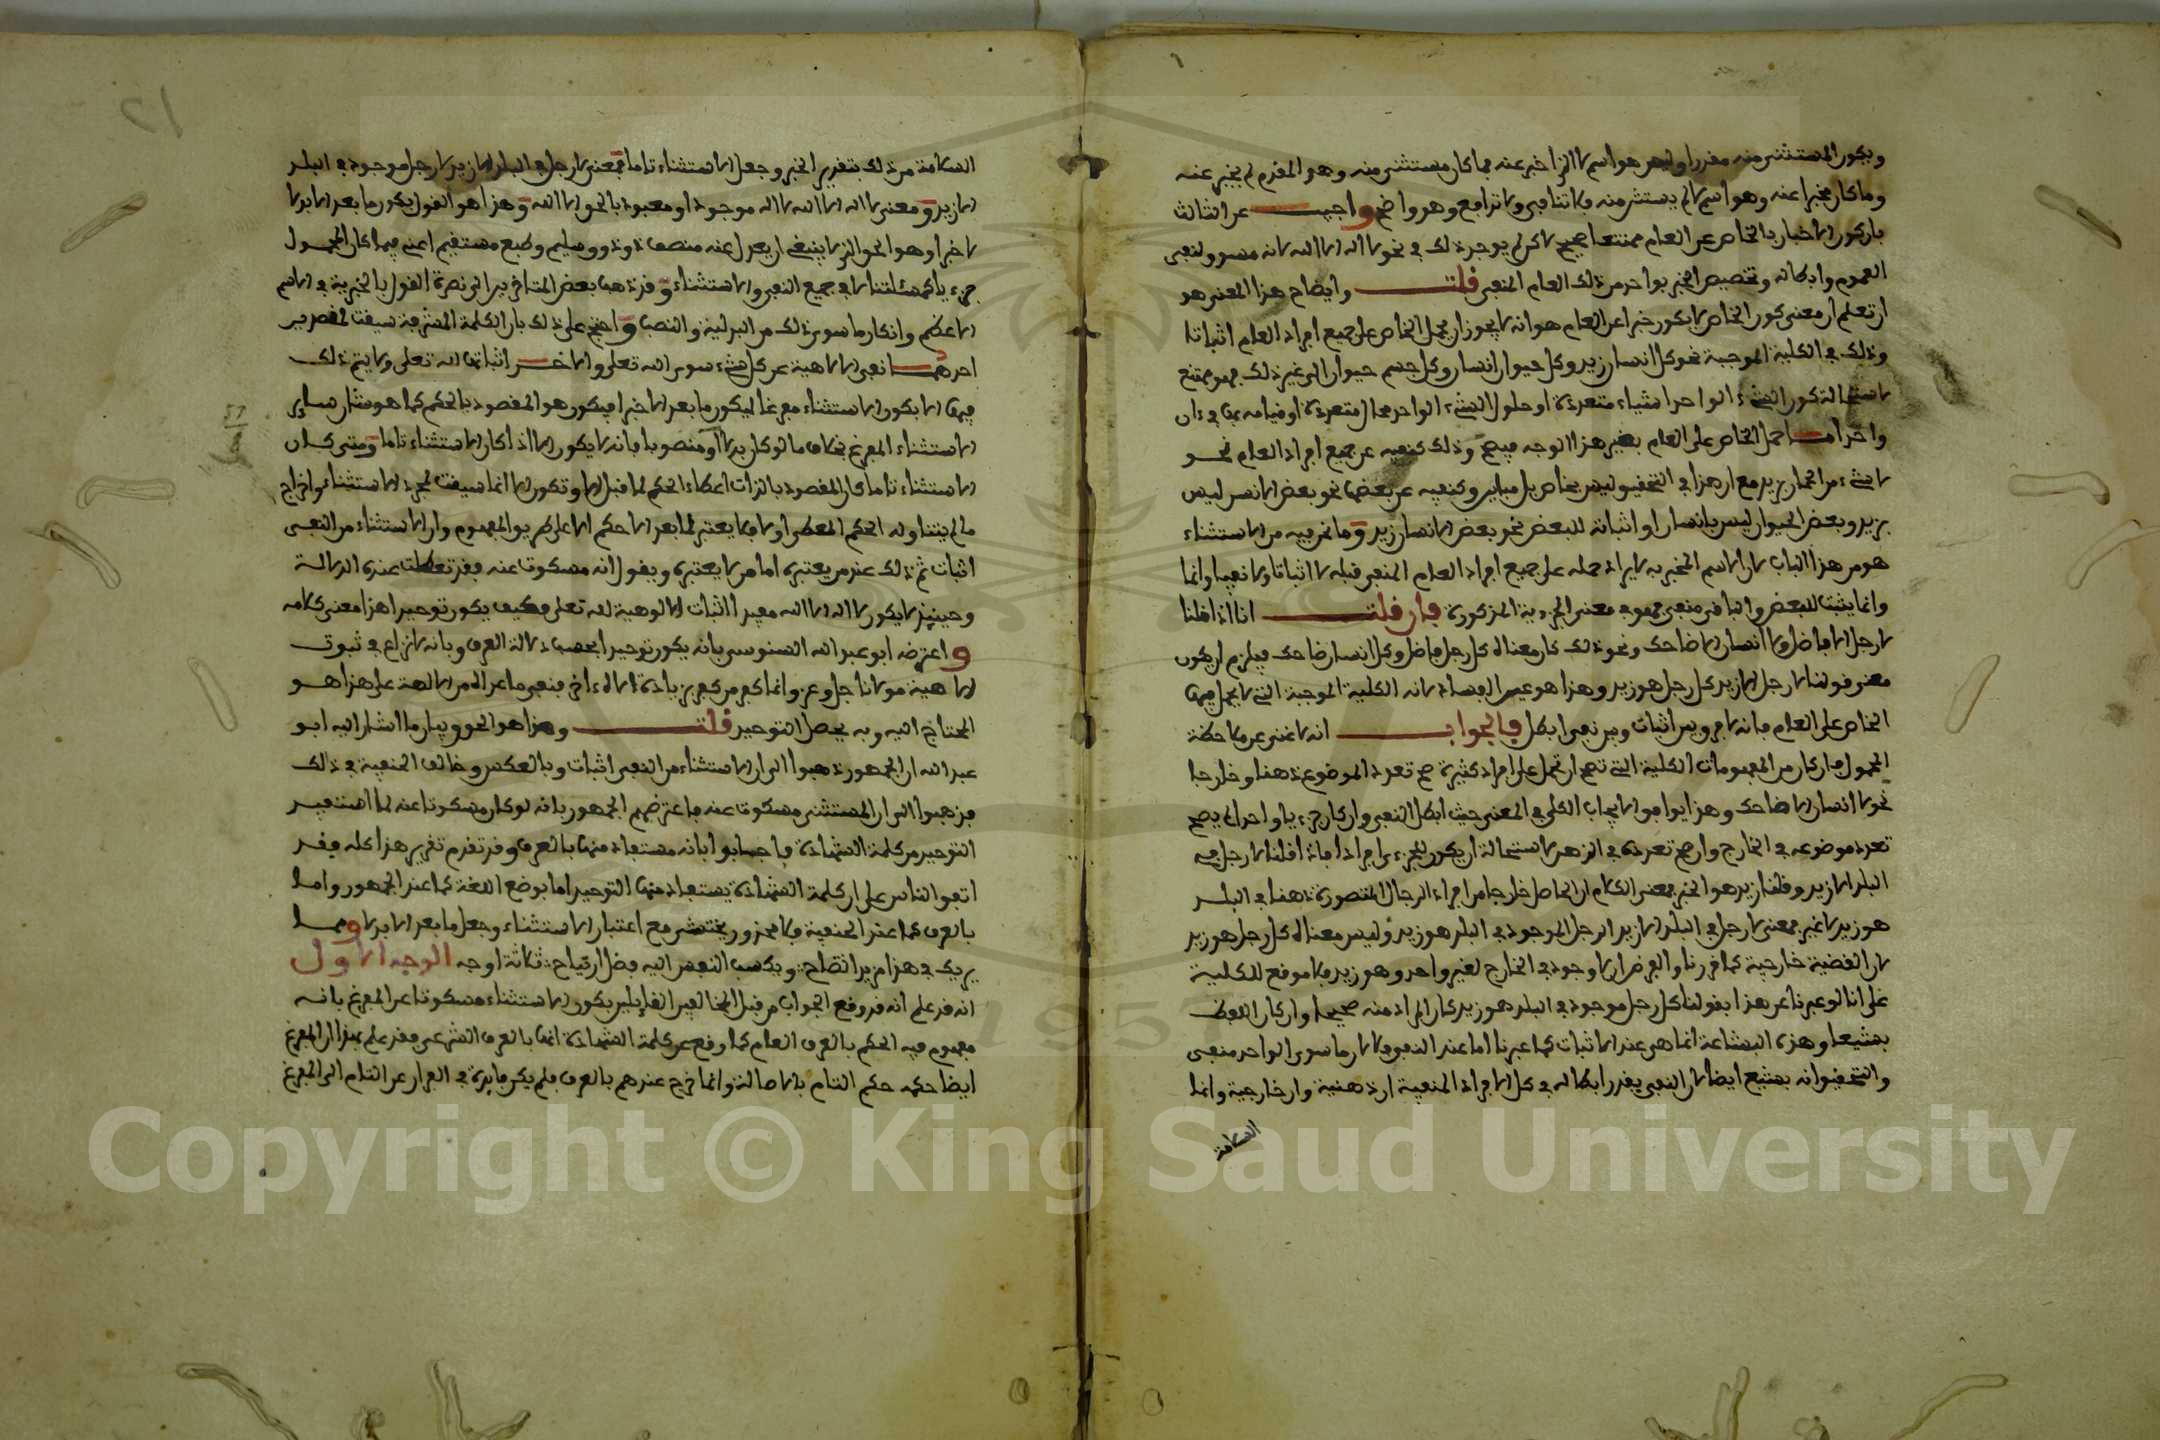 ويكون المستثنى منه مقدرا وليس هو اسم لا الذي اخبر عنه فما كان مستثنى منه وهو المقدم لم يخبر عنه
وما كان مخبرا عنه وهو اسم لا لم يستثن منه فلا تنافي ولا تدافع وهو واضح واجيب عن الثالث
بان كون الاخبار بالخاص عن العام ممتنعا صحيح لاكن لم يوجد ذلك في نحو لا اله الا الله لانه مسوق لنفي
العموم وابطاله وتخصيص الخبر بواحد من ذلك العام المنفي قلت وايضاح هذا المعنى هو
ان تعلم ان معنى كون الخاص لا يكون خبرا عن العام هو انه لا يجوز ان يحمل الخاص على جميع افراد العام اثباتا
وذلك في الكلية الموجبة نحو كل انسان زيد وكل حيوان انسان وكل جسم حيوان الى غير ذلك فهو ممتنع
لاستحالة كون الشيء الواحد اشياء متعددة او حلول الشيء الواحد محال متعددة او قيامه بها في ءان
واحد اما حمل الخاص على العام بغير هذا الوجه فيصح وذلك كنفيه عن جميع افراد العام نحو
لا شيء من الحمار بزيد مع ان هذا في التحقيق ليس بخاص بل مباين وكنفيه عن بعضها نحو بعض الانس ليس
بزيد وبعض الحيوان ليس بانسان او اثباته للبعض نحو بعض الانسان زيد وما نحن فيه من الاستثناء
هو من هذا الباب لان الاسم المخبر به لا يراد حمله على جميع افراد العام المنفي قبله لا اثباتا ولا نفيا وانما
وانما يثبت للبعض والباقي منفي فهو في معنى الجزءية المذكورة فان قلت انا اذا قلنا
لا رجل الا فاضل ولا انسان الا ضاحك ونحو ذلك كان معناه كل رجل فاضل وكل انسان ضاحك فيلزم ان يكون
معنى قولنا لا رجل الا زيد كل رجل هو زيد وهذا هو عين الفساد لانه الكلية الموجبة التي لا يحمل فيها
الخاص على العام فانه لا فرق بين اثبات وبين نفي ابطل فالجواب انه لا غنى عن ملاحظة
المحمول فان كان من المفهومات الكلية التي تصح ان تحمل على افراد كثيرة صح تعدد الموضوع ذهنا وخارجا
نحو لا انسان الا ضاحك وهذا يوافق الايجاب الكلي في المعنى حيث ابطل النفي وان كان جزءيا واحدا لم يصح
تعدد موضوعه في الخارج وان صح تعدده في الذهن لاستحالة ان يكون للجزءي افراد فاذا قلنا لا رجل في
البلد الا زيد وقلنا زيد هو الخبر فمعنى الكلام ان الحاصل خارجا من افراد الرجال المتصورة ذهنا في البلد
هو زيد لا غير فمعنى لا رجل في البلد الا زيد الرجل الموجود في البلد هو زيد وليس معناه كل رجل هو زيد
لان القضية خارجية كما قررنا والفرض ان لا وجود في الخارج لغير واحد وهو زيد فلا موقع للكلية
على انا لو عبرنا عن هذا بقولنا كل رجل موجود في البلد هو زيد كان المراد منه صحيحا وان كان اللفظ
بشيعا وهذه البشاعة انما هي عند الاثبات كما عبرنا اما عند النفي فلا لان ما سوى الواحد منفي
والتحقيق انه بشيع ايضا لان النفي يقدر ابطاله في كل الافراد المنفية ان ذهنية وان خارجية وانما
السلامة
السلامة من ذلك بتقدير الخبر وجعل الاستثناء تاما فمعنى لا رجل في البلد الا زيد لا رجل موجود في البلد
الا زيد ومعنى لا اله الا الله لا اله موجود او معبود بالحق الا الله وهذا هو القول بكون ما بعد الا بدلا
لا خبرا وهو الحق الذي لا ينبغي ان يعدل عنه منصف ذو ذوق سليم وطبع مستقيم اعني فيما كان المحمول
جزءيا كمسئلتنا لا في جميع النفي والاستثناء وقد ذهب بعض المتاخرين الى نصرة القول بالخبرية في الاسم
الاعظم وانكار ما سوى ذلك من البدلية والنصب واحتج على ذلك بان الكلمة المشرفة سيقت لمقصدين
احدهما نفي الالاهية عن كل شيء سوى الله تعلى والاخر اثباتها لله تعلى ولا يتم ذلك
فيها الا بكون الاستثناء مفرغا ليكون ما بعد الا خبرا فيكون هو المقصود بالحكم كما هو شان ساير
الاستثناء المفرغ بخلاف ما لو كان بدلا او منصوبا فانه لا يكون الا اذا كان الاستثناء تاما ومتى كان
الاستثناء تاما كان المقصود بالذات اعطاء الحكم لما قبل الا وتكون الا انما سيقت لمجرد الاستثناء واخراج
ما لم يتناوله الحكم المعطى اولا فلا يعتبر لما بعد الا حكم الا على طريق المفهوم وان الاستثناء من النفي
اثبات ثم ذلك عند من يعتبره اما من لا يعتبره ويقول انه مسكوت عنه فقد تعطلت عنده الدلالة
وحينئذ لا يكون لا اله الا الله مفيدا اثبات الالوهية لله تعلى فكيف يكون توحيدا هذا معنى كلامه
واعترضه ابو عبد الله السنوسي بانه يكون توحيدا بحسب دلالة العرف وبانه لا نزاع في ثبوت
الالاهية لمولانا جل وعز وانما كفر من كفر بزيادة اله ءاخر فنفي ما عداه من الالهة على هذا هو
المحتاج اليه وبه يحصل التوحيد قلت وهذا هو الحق وبيان ما اشار اليه ابو
عبد الله ان الجمهور ذهبوا الى ان الاستثناء من النفي اثبات وبالعكس وخالف الحنفية في ذلك
فذهبوا الى ان المستثنى مسكوت عنه فاعترضهم الجمهور بانه لو كان مسكوتا عنه لما استفيد
التوحيد من كلمة الشهادة فاجابوا بانه مستفاد منها بالعرف وقد تقدم تقرير هذا كله فقد
اتفق الناس على ان كلمة الشهادة يستفاد منها التوحيد اما بوضع اللغة كما عند الجمهور واما
بالعرف كما عند الحنفية فلا محذور يختشى مع اعتبار الاستثناء وجعل ما بعد الا بدلا ومما
يزيدك في هذا مزيد اتضاح ويكسب النفس اليه فضل ارتياح ثلاثة اوجه الوجه الاول
انه قد علم انه قد وقع الجواب من قبل المخالفين القايلين بكون الاستثناء مسكوتا عن المفرغ بانه
مفهوم فيه الحكم بالعرف العام كما وقع عن كلمة الشهادة انها بالعرف الشرعي فقد علم بهذا ان المفرغ
ايضا حكمه حكم التام بالاصالة وانما خرج عندهم بالعرف فلم يكن فايدة في الفرار عن التام الى المفرغ